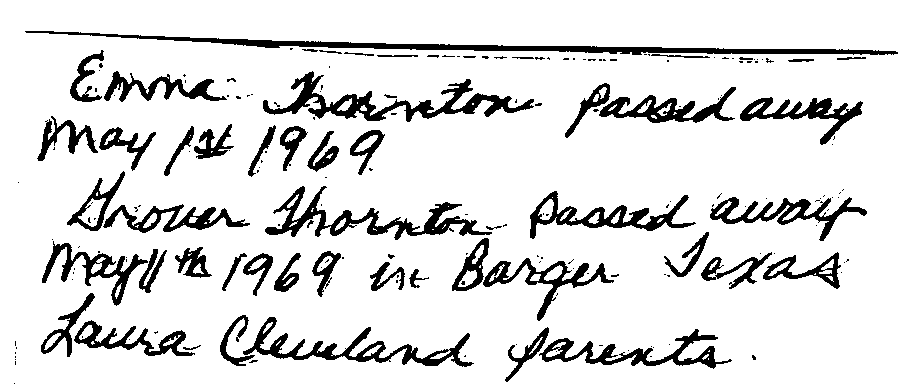 Emma Thornton passed away
May 1st 1969
Grover Thornton passed away
May 11th 1969 in Barger Texas
Laura Cleveland parents.